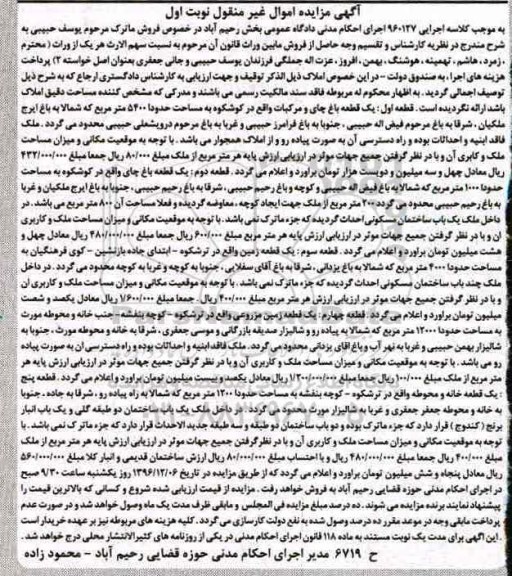 آگهی مزایده اموال غیر منقول نوبت اول
به موجب کلاسه اجرایی ۹۶۰۱۳۷ اجرای احکام مدنی دادگاه عمومی بخش رحیم آباد در خصوص فروش ماترک مرحوم یوسف حبیبی به
شرح مندرج در نظریه کارشناس و تقسیم وجه حاصل از فروش مابین وراث قانون آن مرحوم به نسبت سهم الارث هر یک از وراث (محترم
، زمرد ، هاشم ، تهمینه ، هوشنگ ، بهمن ، افروز ، عزت اله جملگی فرزندان یوسف حبیبی و جانی جعفری بعنوان اصل خواسته ۲) پرداخت
هزینه های اجرا ، به صندوق دولت – در این خصوص املاک ذیل الذکر توقیف و جهت ارزیابی به کارشناس دادگستری ارجاع که به شرح ذیل
توصیف اجمالی گردید . به اظهار محکوم له مربوطه فاقد سند مالکیت رسمی می باشند و مدرکی که مشخص کننده مساحت دقیق املاک
باشد ارائه نگردیده است . قطعه اول : یک قطعه باغ چای و مرکبات واقع در کوشکوه به مساحت حدودا ۵۴۰۰ متر مربع که شمالا به باغ ایرج
ملکیان ، شرقا به باغ مرحوم فیض اله حبیبی ، جنوبا به باغ فرامرز حبیبی و غربا به باغ مرحوم درویشعلی حبیبی محدود می گردد . ملک
فاقد ابنیه و احداثات بوده و راه دسترسی آن به صورت پیاده رو و از املاک همجوار می باشد . با توجه به موقعیت مکانی و میزان مساحت
ملک و کابری آن و با در نظر گرفتن جمیع جهات موثر در ارزیابی ارزش پایه هر متر مربع از ملک مبلغ ۸۰/۰۰۰ ریال جمعا مبلغ ۴۳۲/۰۰۰/۰۰۰
ریال معادل چهل و سه میلیون و دویست هزار تومان براورد و اعلام می گردد . قطعه دوم : یک قطعه باغ چای واقع در کوشکوه به مساحت
حدودا ۱۰۰۰ متر مربع که شمالا به باغ فیض اله حبیبی و کوچه و باغ رحیم حبیبی ، شرقا به باغ رحیم حبیبی ، جنوبا به باغ ایرج ملکیان و غربا
به باغ رحیم حبیبی محدود می گردد ۲۰۰ متر مربع از ملک جهت ایجاد کوچه ، معاوضه گردیده و فعلا مساحت آن ۸۰۰ متر مربع می باشد . در
داخل ملک یک باب ساختمان مسکونی احداث گردیده که جزء ماترک نمی باشد . با توجه به موقعیت مکانی و میزان مساحت ملک و کاربری
ان و با در نظر گرفتن جمیع جهات موثر در ارزیابی ارزش پایه هر متر مربع مبلغ ۶۰۰/۰۰۰ ریال جمعا مبلغ ۴۸۰/۰۰۰/۰۰۰ ریال معادل چهل و
هشت میلیون تومان براورد و اعلام می گردد . قطعه سوم : یک قطعه زمین واقع در ترشکوه – ابتدای جاده بازنشین – کوی فرهنگیان به
مساحت حدودا ۴۰۰۰ متر مربع که شمالا به باغ یزدانی ، شرقا به باغ آقای سفلایی ، جنوبا به کوچه و غربا به کوچه محدود می گردد . در داخل
ملک چند باب ساختمان مسکونی احداث گردیده که جزء ماترک نمی باشد . با توجه به موقعیت مکانی و میزان مساحت ملک و کاربری ان
و با در نظر گرفتن جمیع جهات موثر در ارزیابی ارزش هر متر مربع مبلغ ۴۰۰/۰۰۰ ریال . جمعا مبلغ ۱/۶۰۰/۰۰۰/۰۰۰ ریال معادل یکصد و شصت
میلیون تومان براورد و اعلام می گردد . قطعه چهارم : یک قطعه زمین مزروعی واقع در ترشکوه – کوچه بنفشه – جنب خانه و محوطه مورث
به مساحت حدودا ۱۲۰۰۰ متر مربع که شمالا به پیاده رو و شالیزار صدیقه بازرگانی و موسی جعفری ، شرقا به خانه و محوطه مورث ، جنوبا به
شالیزار بهمن حبیبی و غربا به نهر آب و باغ اقای یزدانی محدود می گردد . ملک فاقد ابنیه و احداثات بوده و راه دسترسی ان به صورت پیاده
رو می باشد . با توجه به موقعیت مکانی و میزان مساحت ملک و کاربری آن و با در نظر گرفتن جمیع جهات موثر در ارزیابی ارزش پایه هر
متر مربع از ملک مبلغ ۱۰۰/۰۰۰ ریال جمعا مبلغ ۱/۲۰۰/۰۰۰/۰۰۰ ریال معادل یکصد و بیست میلیون تومان براورد و اعلام می گردد . قطعه پنج
: یک قطعه خانه و محوطه واقع در ترشکوه – کوچه بنفشه به مساحت حدودا ۱۲۰۰ متر مربع که شمالا به راه پیاده رو ، شرقا به جاده ، جنوبا
به خانه و محوطه جعفر جعفری و غربا به شالیزار مورث محدود می گردد . در داخل ملک یک باب ساختمان دو طبقه گلی و یک باب انبار
برنج (کندوج) قرار دارد که جزء ماترک بوده و دو باب ساختمان دو طبقه و سه طبقه جدید الاحداث قرار دارد که جزء ماترک نمی باشد . با
توجه به موقعیت مکانی و میزان مساحت ملک و کاربری آن و با در نظرگرفتن جمیع جهات موثر در ارزیابی ارزش پایه هر متر مربع از ملک
مبلغ ۴۰۰/۰۰۰ ریال جمعا مبلغ ۴۸۰/۰۰۰/۰۰۰ ریال و با احتساب مبلغ ۸۰/۰۰۰/۰۰۰ ریال ارزش ساختمان قدیمی و انبار کلا مبلغ ۵۶۰/۰۰۰/۰۰۰
ریال معادل پنجاه و شش میلیون تومان براورد و اعلام می گردد که از طریق مزایده در تاریخ ۱۳۹۶/۱۲/۰۶ روز یکشنبه ساعت ۹/۳۰ صبح
در اجرای احکام مدنی حوزه قضایی رحیم آباد به فروش خواهد رفت . مزایده از قیمت ارزیابی شده شروع و کسانی که بالاترین قیمت را
پیشنهاد نمایند برنده مزایده می شوند . ده درصد مبلغ مزایده فی المجلس و مابقی ظرف مدت یک ماه وصول خواهد شد و در صورت عدم
پرداخت مابقی وجه در موعد مقرر ده درصد وصول شده به نفع دولت کارسازی می گردد . کلیه هزینه های مربوطه نیز بر عهده خریدار است
. این اگهی برای مدت یک نوبت مستند به ماده ۱۱۸ قانون اجرای احکام مدنی در یکی از روزنامه های کثیرالانتشار محلی درج خواهد شد .
ح ۶۷۱۹ مدیر اجرای احکام مدنی حوزه قضایی رحیم آباد – محمود زاده